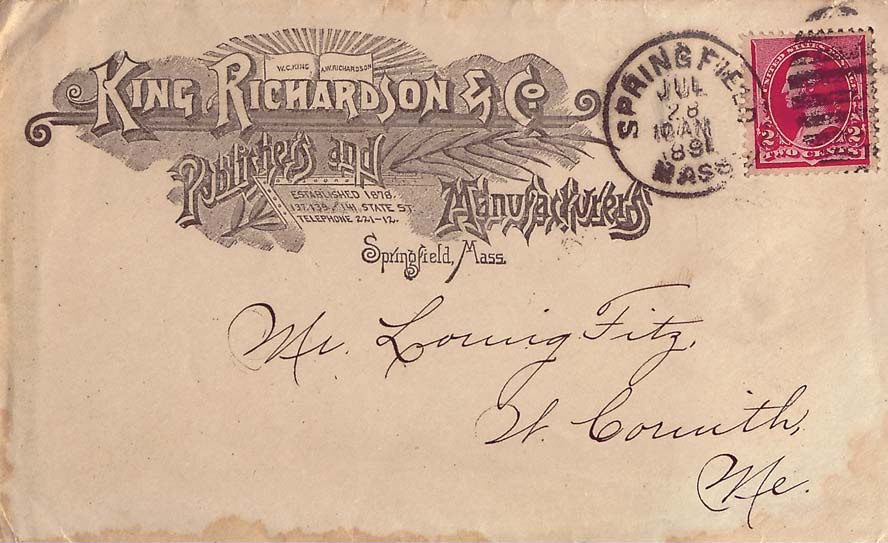 W.C.KING A.W.RICHARDSON
KING RICHARDSON & Co
Publishers and
Manufacturers
ESTABLISHED 1878.
137, 139, 141 STATE ST.
TELEPHONE 221-12.
Springfield, Mass.
SPRINGFIELD
JUL
28
10 AM
MASS
UNITED STATES
2 2
TWO CENTS
Mr. Loring Fitz,
W. Corinth,
Me.